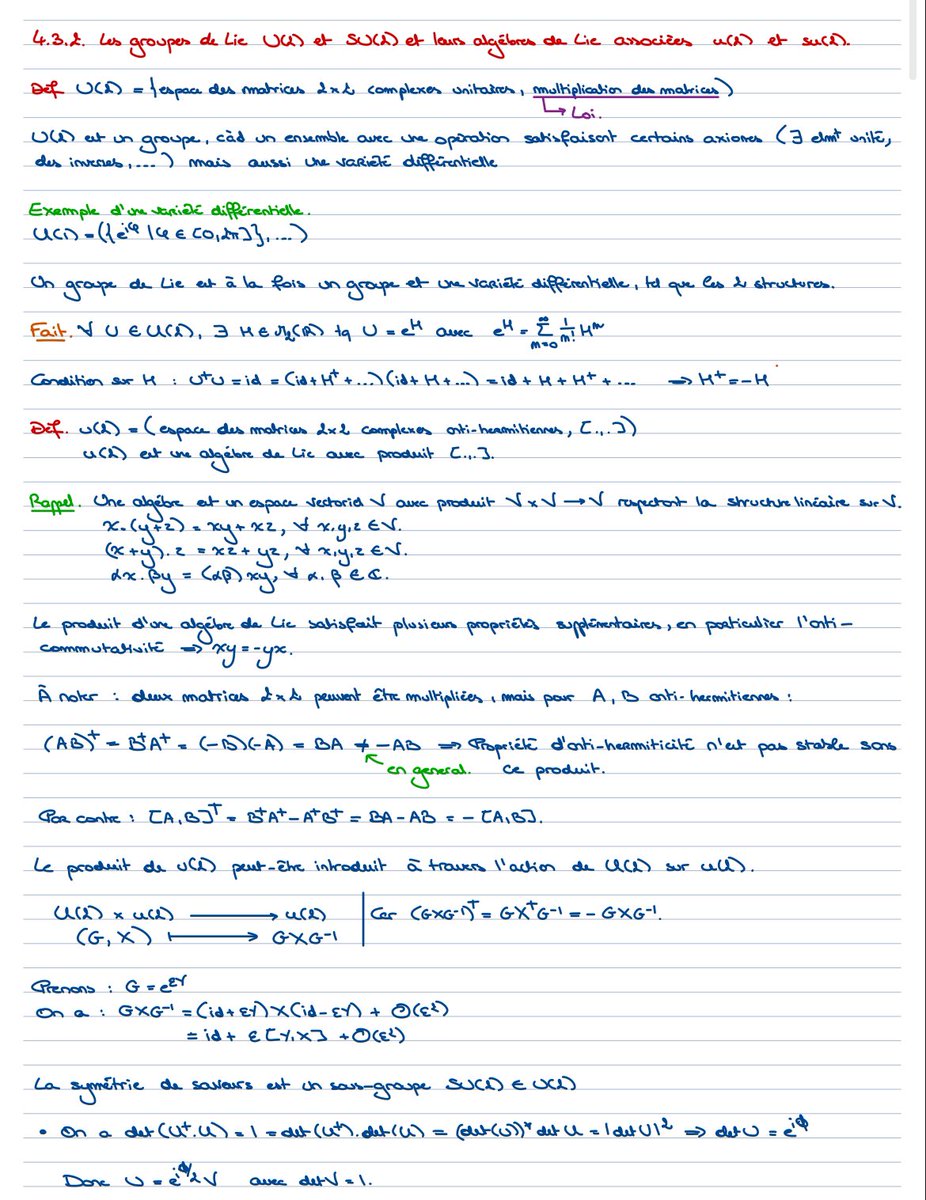 4.3.2. Les groupes de Lie U(2) et SU(2) et leurs algèbres de Lie associées u(2) et su(2).
Déf U(2) = {espace des matrices 2×2 complexes unitaires, multiplication des matrices)
↳ Loi.
U(2) est un groupe, càd un ensemble avec une opération satisfaisant certains axiomes (∃ elmt unité,
des inverses, ...) mais aussi une variété différentielle
Exemple d'une variété différentielle.
U(1) = ({e^{iφ} | φ ∈ [0,2π]}, ...)
Un groupe de Lie est à la fois un groupe et une variété différentielle, tel que les 2 structures.
Fait. ∀ U ∈ U(2), ∃ H ∈ M₂(ℝ) tq U = e^H avec e^H = Σ_{m=0}^∞ 1/m! H^m
Condition sur H : U†U = id = (id + H† + ...)(id + H + ...) = id + H + H† + ... ⇒ H† = -H
Déf. u(2) = (espace des matrices 2×2 complexes anti-hermitiennes, [.,.])
u(2) est une algèbre de Lie avec produit [.,.].
Rappel. Une algèbre est un espace vectoriel V avec produit V × V → V respectant la structure linéaire sur V.
x.(y+z) = xy + xz, ∀ x,y,z ∈ V.
(x+y).z = xz + yz, ∀ x,y,z ∈ V.
αx.βy = (αβ) xy, ∀ α, β ∈ ℂ.
Le produit d'une algèbre de Lie satisfait plusieurs propriétés supplémentaires, en particulier l'anti-
commutativité ⇒ xy = -yx.
À noter : deux matrices 2×2 peuvent être multipliées, mais pour A, B anti-hermitiennes :
(AB)† = B†A† = (-B)(-A) = BA ≠ -AB ⇒ Propriété d'anti-hermiticité n'est pas stable sous
en general. ce produit.
Par contre : [A,B]† = B†A† - A†B† = BA - AB = - [A,B].
Le produit de u(2) peut-être introduit à travers l'action de U(2) sur u(2).
U(2) × u(2) ⟶ u(2) | Car (GXG⁻¹)† = GX†G⁻¹ = - GXG⁻¹.
(G, X) ⟼ GXG⁻¹
Prenons : G = e^{εY}
On a : GXG⁻¹ = (id + εY) X (id - εY) + O(ε²)
= id + ε [Y,X] + O(ε²)
La symétrie de saveurs est un sous-groupe SU(2) ∈ U(2)
• On a det(U†.U) = 1 = det(U†).det(U) = (det(U))* det U = |det U|² ⇒ det U = e^{iϕ}
Donc U = e^{iϕ/2} V avec det V = 1.